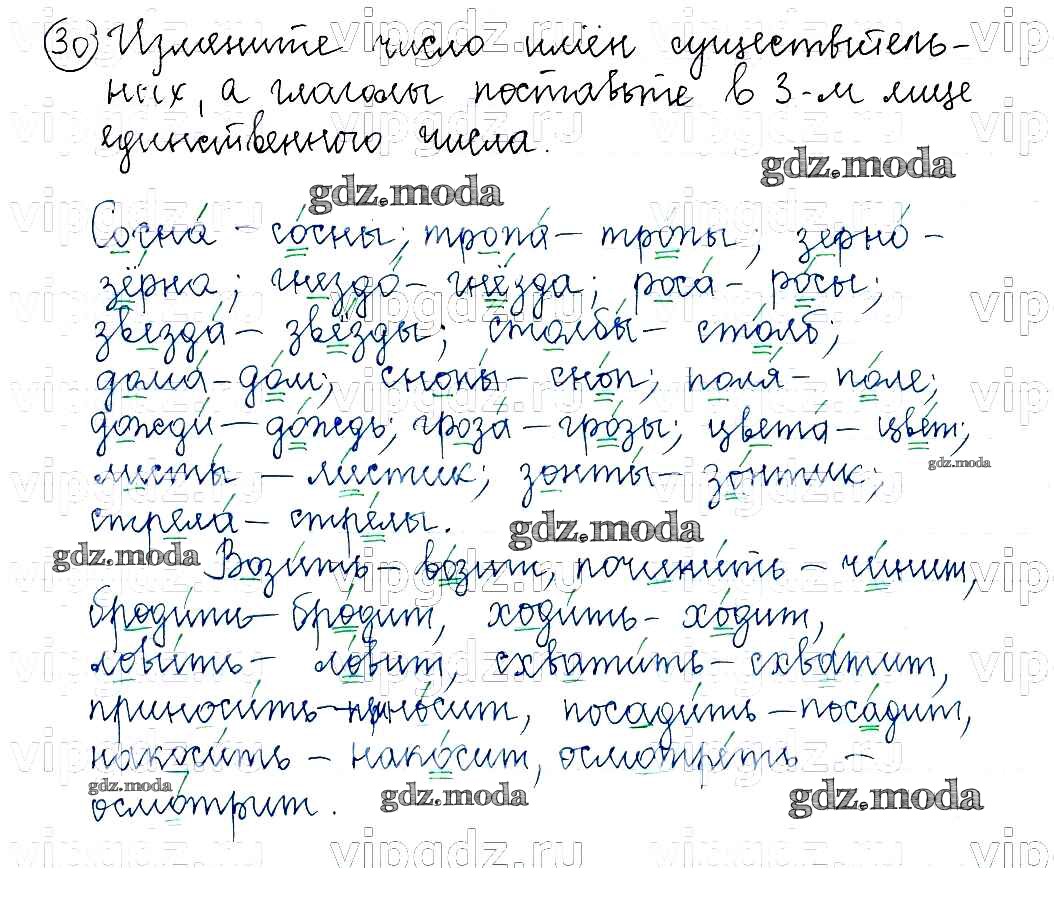 30 Измените число имён существитель-
ных, а глаголы поставьте в 3-м лице
единственного числа.
gdz.moda
gdz.moda
Сосна́ - со́сны; тропа́ - тро́пы; зерно́ -
зёрна; гнездо́ - гнёзда; роса́ - ро́сы;
звезда́ - звёзды; столбы́ - сто́лб;
дома́ - до́м; снопы́ - сно́п; поля́ - по́ле;
дожди́ - до́ждь; гроза́ - гро́зы; цвета́ - цве́т;
gdz.moda
листы́ - ли́стик; зонты́ - зо́нтик;
стрела́ - стре́лы.
gdz.moda
gdz.moda
Вози́ть - во́зит, почини́ть - чи́нит,
броди́ть - бро́дит, ходи́ть - хо́дит,
лови́ть - ло́вит, схвати́ть - схва́тит,
приноси́ть - прино́сит, посади́ть - поса́дит,
накоси́ть - нако́сит, осмотре́ть -
gdz.moda
gdz.moda
gdz.moda
осмо́трит.
vipgdz.ru